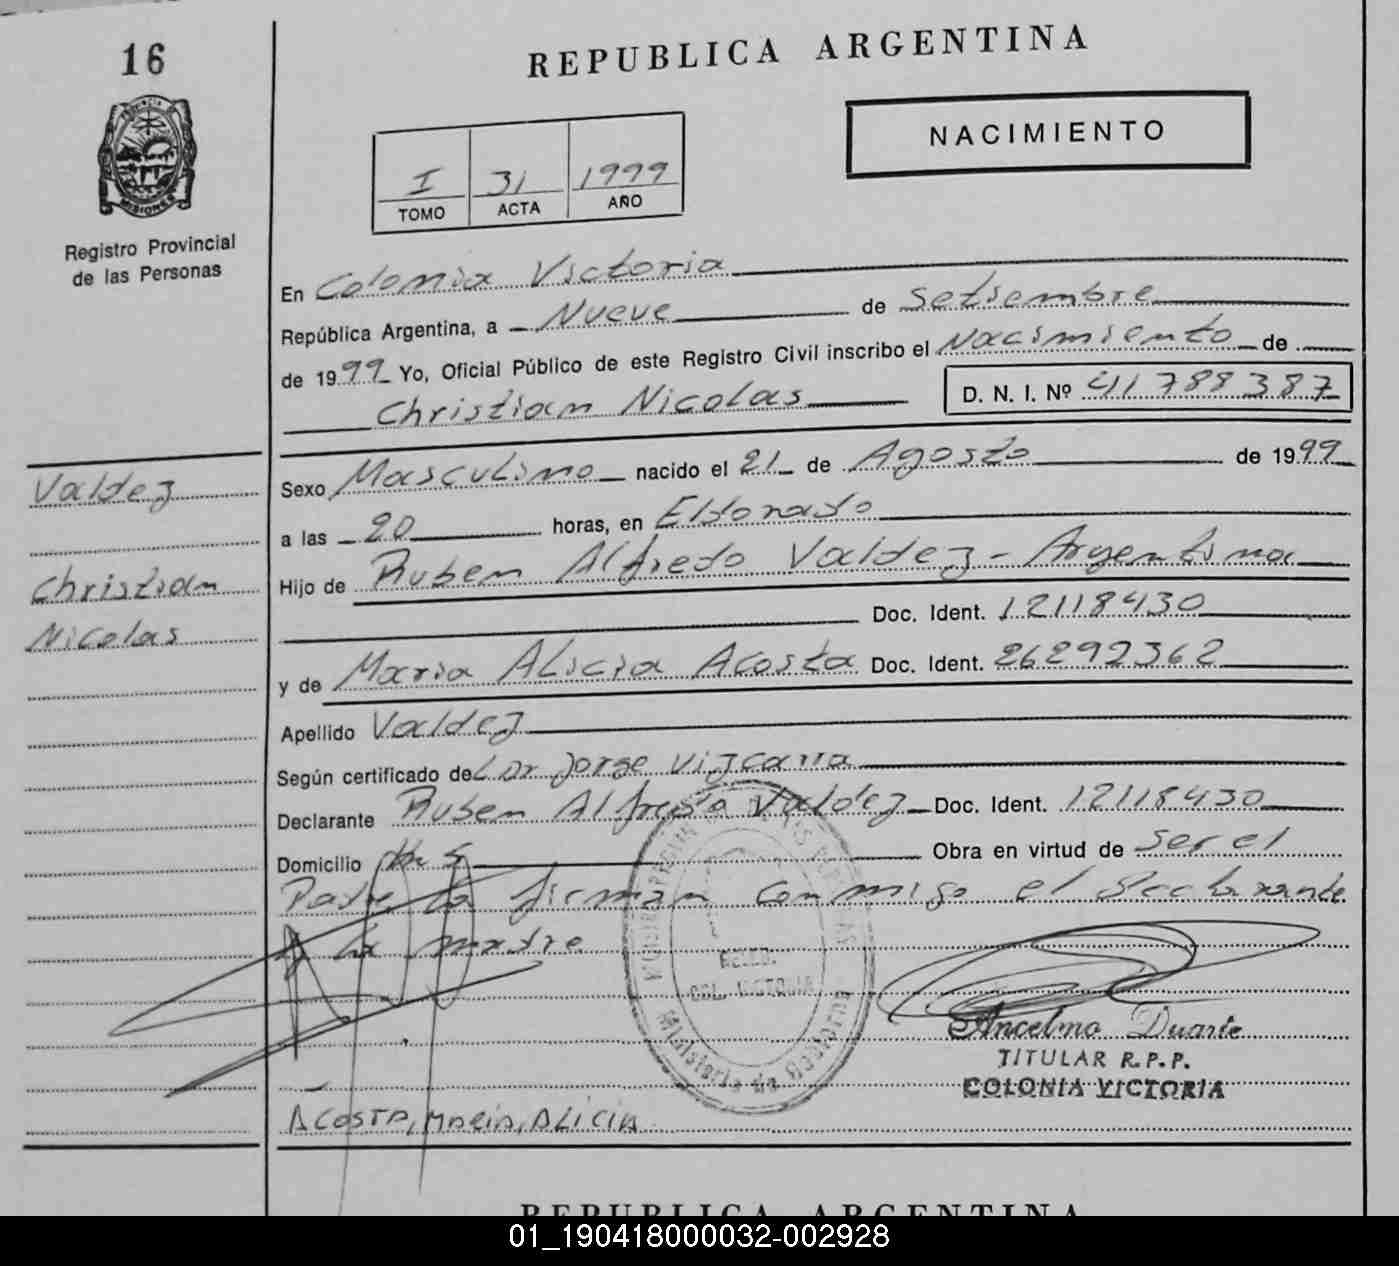 16
REPUBLICA ARGENTINA
PROVINCIA DE MISIONES
Registro Provincial
de las Personas
NACIMIENTO
I 31 1999
TOMO ACTA AÑO
En Colonia Victoria
República Argentina, a Nueve de Setiembre
de 1999 Yo, Oficial Público de este Registro Civil inscribo el Nacimiento de
Christian Nicolas D. N. I. Nº 41 788 387
Valdez
Christian
Nicolas
Sexo Masculino nacido el 21 de Agosto de 1999
a las 20 horas, en Eldorado
Hijo de Ruben Alfredo Valdez - Argentina
Doc. Ident. 12118430
y de Maria Alicia Acosta Doc. Ident. 26292362
Apellido Valdez
Según certificado del Dr Jorge Vizcarra
Declarante Ruben Alfredo Valdez Doc. Ident. 12118430
Domicilio Obra en virtud de ser el
Padre firman conmigo el declarante
y la madre
COL. VICTORIA
Ministerio de
Ancelmo Duarte
TITULAR R.P.P.
COLONIA VICTORIA
ACOSTA, MARIA, ALICIA
REPUBLICA ARGENTINA
01_190418000032-002928